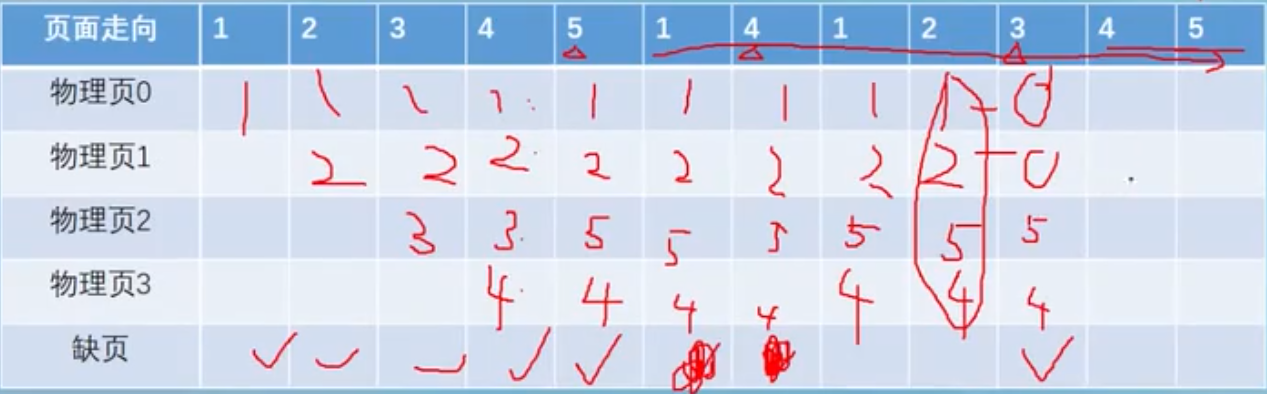 页面走向 1 2 3 4 5 1 4 1 2 3 4 5
物理页0 1 1 1 1 1 1 1 1 1 0
物理页1 2 2 2 2 2 2 2 2 0
物理页2 3 3 5 5 5 5 5
物理页3 4 4 4 4 4 4 4
缺页 ✓ ✓ ✓ ✓ ✓ ✓